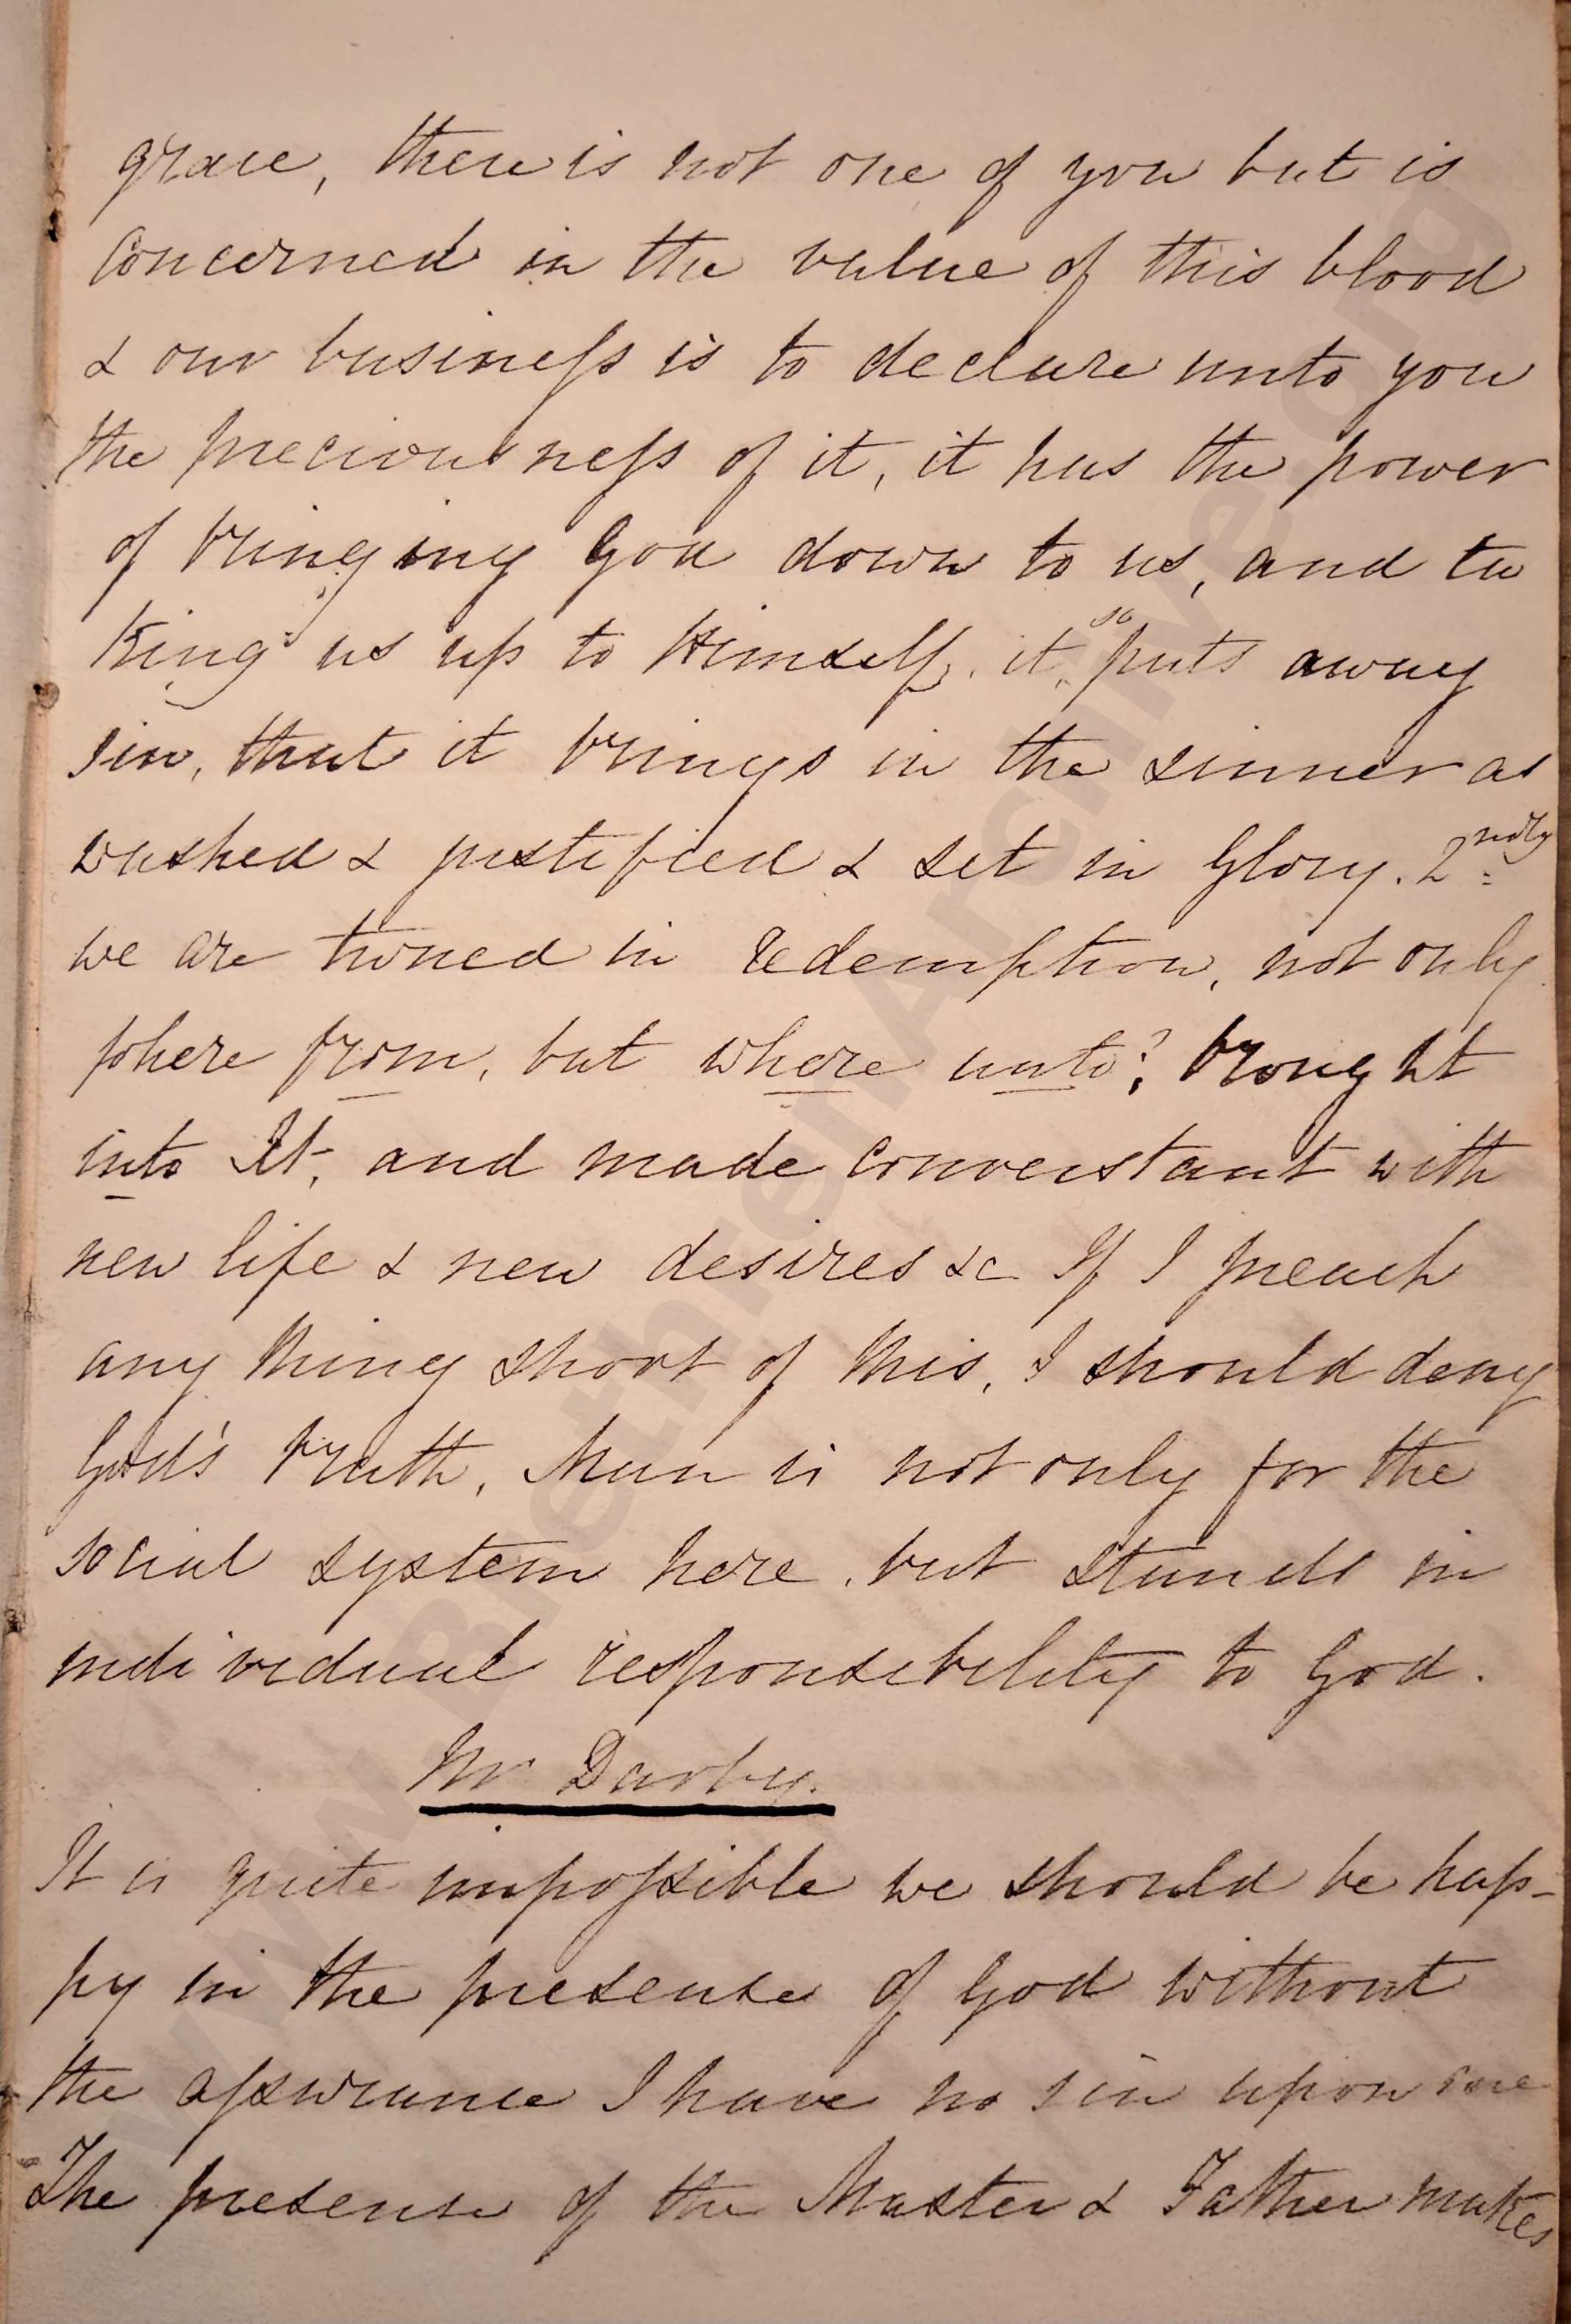 grace, there is not one of you but is
concerned in the value of this blood
& our business is to declare unto you
the preciousness of it, it has the power
of bringing God down to us, and ta
king us up to Himself, it so puts away
sin, that it brings in the sinner as
washed & justified & set in Glory. 2ndly
we are in redemption, not only
where from, but where unto? brought
into It, and made with
new life & new desires &c If I preach
any thing short of this, I should deny
God's truth, Man is not only for the
social system here, but stands in
individual responsibility to God.
Mr Darby.
It is quite impossible we should be hap-
py in the presence of God without
the assurance I have no sin upon me
The presence of the Master & Father makes
www.BrethrenArchive.org